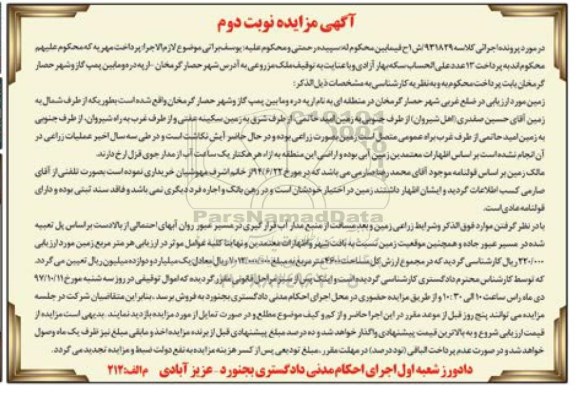 آگهی مزایده نوبت دوم
در مورد پرونده اجرائی کلاسه ۹۳۱۸۲۹/ش/ح فیمابین محکوم له: سپیده رحمتی و محکوم علیه: یوسف براتی موضوع لازم الاجرا: پرداخت مهریه که محکوم علیهم
محکوم اند به پرداخت ۱۳ عدد علی الحساب سکه بهار آزادی و با عنایت به توقیف ملک مزروعی به آدرس شهر حصار گرمخان - اریه دره و مابین پمپ گاز و شهر حصار
گرمخان بابت پرداخت محکوم به و به نظریه کارشناسی به مشخصات ذیل الذکر:
زمین مورد ارزیابی در ضلع غربی شهر حصار گرمخان در منطقه ای به نام اریه دره و مابین پمپ گاز و شهر حصار گرمخان واقع شده است بطوریکه از طرف شمال به
زمین آقای حسین صفدری (اهل شیروان)، از طرف جنوبی به زمین امید حاتمی، از طرف شرق به زمین سکینه عفتی و از طرف غرب به راه شیروان، از طرف جنوبی
به زمین امید حاتمی از طرف غرب براه عمومی متصل است زمین بصورت زراعی بوده و در حال حاضر آیش نکاشت است و در طی سه سال اخیر عملیات زراعی در
آن انجام نشده است بر اساس اظهارات معتمدین زمین آبی بوده و اراضی این منطقه به ازاء هر هکتار یک ساعت آب از مدار جوی قزل ارخ دارند.
مالک زمین بر اساس قولنامه موجود آقای محمد رضا صارمی می باشد که در مورخ ۹۴/۶/۲۲ از خانم اشرف مهوشیان خریداری نموده است بصورت تلفنی از آقای
صارمی کسب اطلاعات گردید و ایشان اظهار داشتند زمین در اختیار خودشان است و در رهن بانک و اجاره فرد دیگری نمی باشد و فاقد سند ثبتی بوده و دارای
قولنامه عادی است.
با در نظر گرفتن موارد فوق الذکر و شرایط زراعی زمین و بعد مسافت از منبع مدار آب قرار گیری در مسیر عبور روان آبهای احتمالی از بالادست بر اساس پل تعبیه
شده در مسیر عبور جاده و همچنین موقعیت زمین نسبت به بافت شهر و اظهارات معتمدین و نهایتا کلیه عوامل موثر در ارزیابی هر متر مربع زمین مورد ارزیابی
۲۲۰/۰۰۰ ریال کارشناسی گردید که در مجموع ارزش کل مساحت ۴۶۰۰ متر مربع به مبلغ ریال معادل یک میلیارد و دوازده میلیون ریال تعیین می گردد.
که توسط کارشناس محترم دادگستری کارشناسی گردیده است و اینک پس از طی مراحل قانونی مقرر گردیده که اموال توقیفی در روز سه شنبه مورخ ۹۷/۱۰/۱۱
دی ماه راس ساعت ۱۰ الی ۱۰:۳۰ و از طریق مزایده حضوری در محل اجرای احکام مدنی دادگستری بجنورد به فروش برسد. بنابر این متقاضیان شرکت در جلسه
مزایده می توانند پنج روز قبل از موعد مقرر در این اجرا حاضر و از کم و کیف موضوع مطلع و در صورت تمایل از مورد مزایده بازدید نمایند. بدیهی است مزایده از
قیمت ارزیابی شروع و به بالاترین قیمت پیشنهادی واگذار خواهد شد و ده درصد مبلغ پیشنهادی قبل از برنده مزایده اخذ و مابقی مبلغ نیز ظرف یک ماه وصول
خواهد شد و در صورت عدم پرداخت الباقی (نود درصد) در مهلت مقرر، مبلغ تودیعی پس از کسر هزینه مزایده به نفع دولت ضبط و مزایده تجدید می گردد.
دادورز شعبه اول اجرای احکام مدنی دادگستری بجنورد - عزیز آبادی م الف: ۲۱۲
ParsNamadData